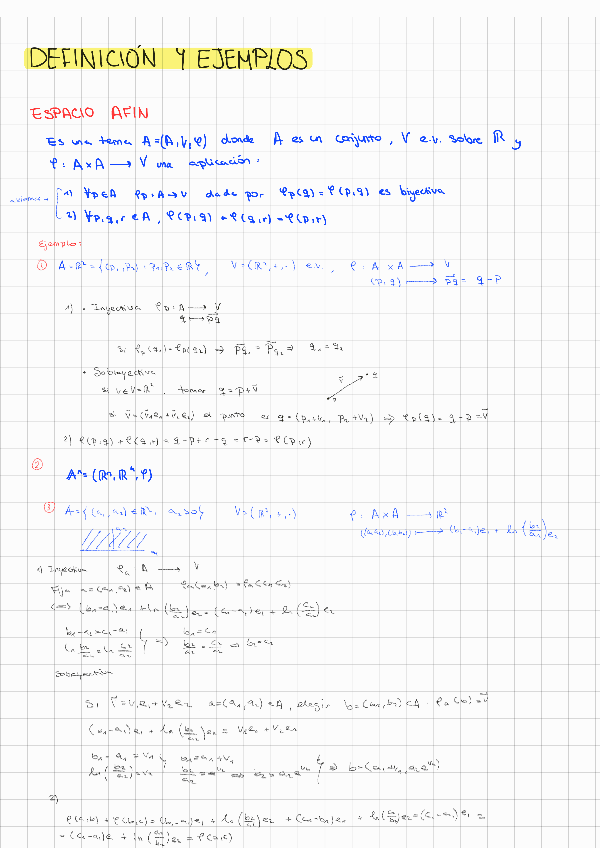 DEFINICIÓN Y EJEMPLOS
ESPACIO AFIN
Es una terna A=(A,V,φ) donde A es un conjunto, V e.v. sobre ℝ y
φ: A×A → V una aplicación:
1) ∀p∈A φp: A→V dada por φp(q)=φ(p,q) es biyectiva
2) ∀p,q,r∈A, φ(p,q)+φ(q,r)=φ(p,r)
Ejemplo:
① A=ℝ²={(p₁,p₂): p₁,p₂∈ℝ}, V=(ℝ²,+,·) e.v., φ: A×A → V
(p,q) → p⃗q⃗ = q-p
1) • Inyectiva φp: A → V
q → p⃗q⃗
si φp(q₁)=φp(q₂) → p⃗q⃗₁ = p⃗q⃗₂ ⇒ q₁=q₂
• Sobreyectiva
si v∈V=ℝ², tomar q=p+v⃗
v⃗ q
si v⃗=(v₁e₁+v₂e₂) el punto es q=(p₁+v₁, p₂+v₂) ⇒ φp(q)=q-p=v⃗
2) φ(p,q)+φ(q,r)=q-p+r-q=r-p=φ(p,r)
②
Aⁿ=(ℝⁿ,ℝⁿ,φ)
③ A={(a₁,a₂)∈ℝ²: a₂>0} V=(ℝ²,+,·) φ: A×A → ℝ²
((a₁,a₂),(b₁,b₂)) → (b₁-a₁)e₁ + ln(b₂/a₂)e₂
1) Inyectiva φa A → V
Fija a=(a₁,a₂)∈A φa(b₁,b₂)=φa(c₁,c₂)
⟺ (b₁-a₁)e₁+ln(b₂/a₂)e₂=(c₁-a₁)e₁+ln(c₂/a₂)e₂
b₁-a₁=c₁-a₁ b₁=c₁
ln b₂/a₂=ln c₂/a₂ ⇒ b₂/a₂=c₂/a₂ ⇒ b₂=c₂
Sobreyectiva
Si v⃗=v₁e₁+v₂e₂ a=(a₁,a₂)∈A, elegir b=(b₁,b₂)∈A: φa(b)=v⃗
(b₁-a₁)e₁+ln(b₂/a₂)e₂=v₁e₁+v₂e₂
b₁-a₁=v₁ b₁=a₁+v₁
ln(b₂/a₂)=v₂ b₂/a₂=e^v₂ ⇒ b₂=a₂e^v₂ ⇒ b=(a₁+v₁,a₂e^v₂)
2)
φ(a,b)+φ(b,c)=(b₁-a₁)e₁+ln(b₂/a₂)e₂+(c₁-b₁)e₁+ln(c₂/b₂)e₂=(c₁-a₁)e₁=
=(c₁-a₁)e₁+ln(c₂/a₂)e₂=φ(a,c)